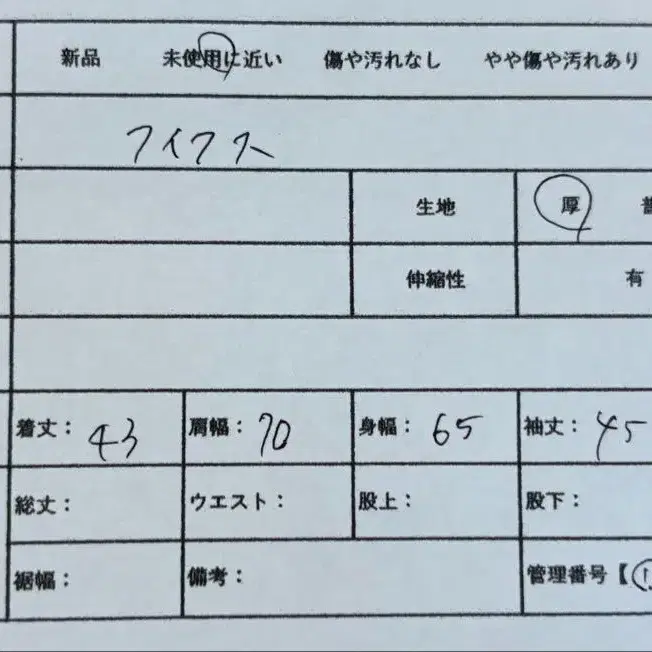 新品 未使用に近い 傷や汚れなし やや傷や汚れあり
生地 厚
伸縮性 有
着丈: 43 肩幅: 70 身幅: 65 袖丈: 45
総丈: ウエスト: 股上: 股下:
裾幅: 備考: 管理番号【①